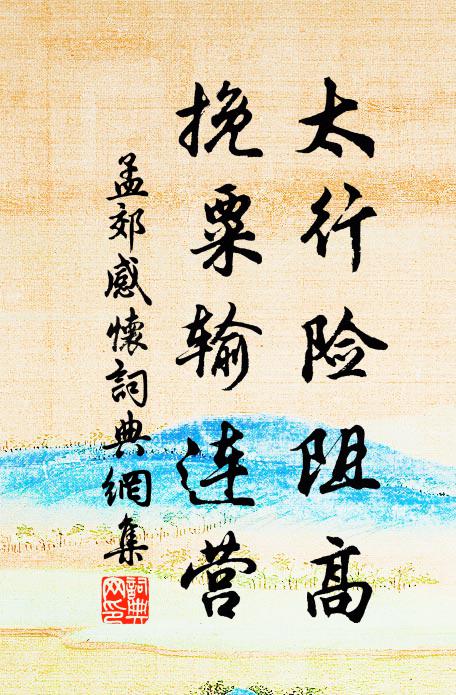 太行险阻高
挽粟输连营
孟郊感懷詞典網集
詞典网印